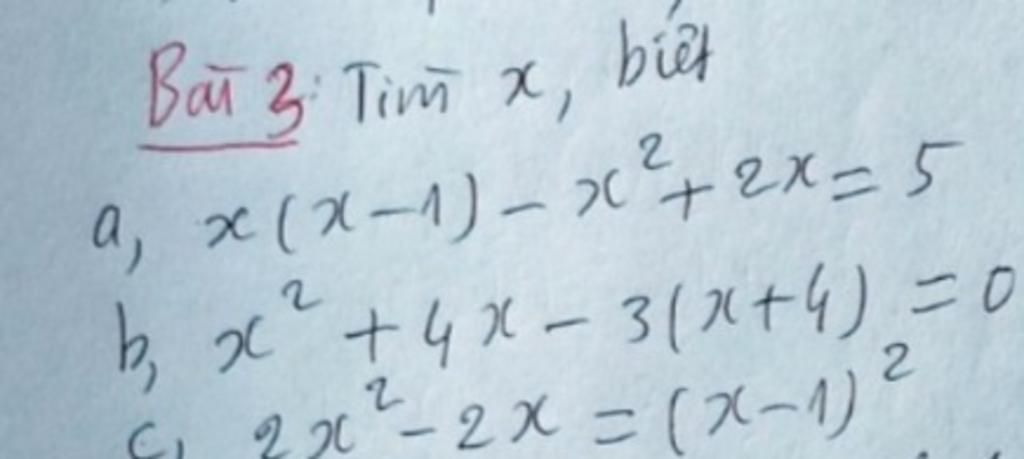 Bài 3: Tìm x, biết
a, x(x-1) - x² + 2x = 5
b, x² + 4x - 3(x+4) = 0
c, 2x² - 2x = (x-1)²